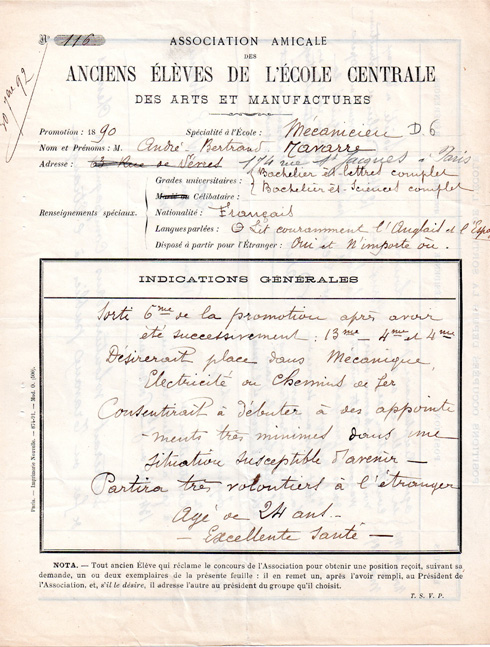 N° 116
ASSOCIATION AMICALE
DES
ANCIENS ÉLÈVES DE L'ÉCOLE CENTRALE
DES ARTS ET MANUFACTURES
92
Promotion : 1890 Spécialité à l'École : Mécanicien D. 6
Nom et Prénoms : M. André-Bertrand Navarre
Adresse : Rue de Sèvres 174 rue St Jacques à Paris
Grades universitaires : Bachelier ès-lettres complet
Bachelier ès-Sciences complet
Marié ou Célibataire :
Renseignements spéciaux. Nationalité : Français
Langues parlées : Lit couramment l'Anglais et l'Espa
Disposé à partir pour l'Étranger : Oui et N'importe où.
INDICATIONS GÉNÉRALES
Sorti 6me de la promotion après avoir
été successivement : 13me - 4me et 4me
Désirerait place dans Mécanique,
Electricité ou Chemins de fer
Consentirait à débuter à des appointe
-ments très minimes dans une
situation susceptible d'avenir —
Partira très volontiers à l'étranger
Agé de 24 ans. -
- Excellente Santé -
Paris. — Imprimerie Nouvelle. — 874-91. — Mod. O. (500).
NOTA. — Tout ancien Élève qui réclame le concours de l'Association pour obtenir une position reçoit, suivant sa
demande, un ou deux exemplaires de la présente feuille : il en remet un, après l'avoir rempli, au Président de
l'Association, et, s'il le désire, il adresse l'autre au président du groupe qu'il choisit.
T. S. V. P.